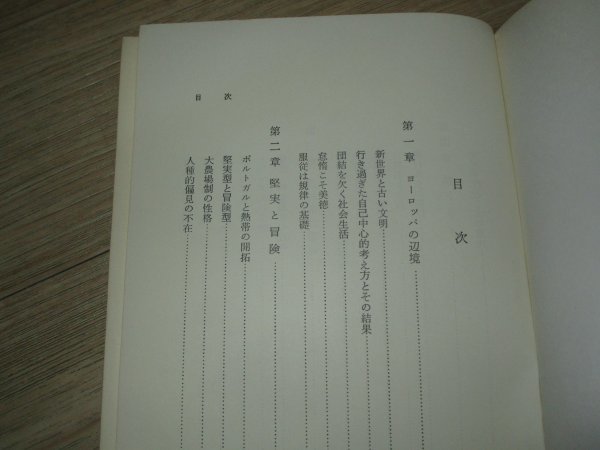 目次
第一章 ヨーロッパの辺境
新世界と古い文明
行き過ぎた自己中心的考え方とその結果
団結を欠く社会生活
怠惰こそ美徳
服従は規律の基礎
第二章 堅実と冒険
ポルトガルと熱帯の開拓
堅実型と冒険型
大農場制の性格
人種的偏見の不在
目次